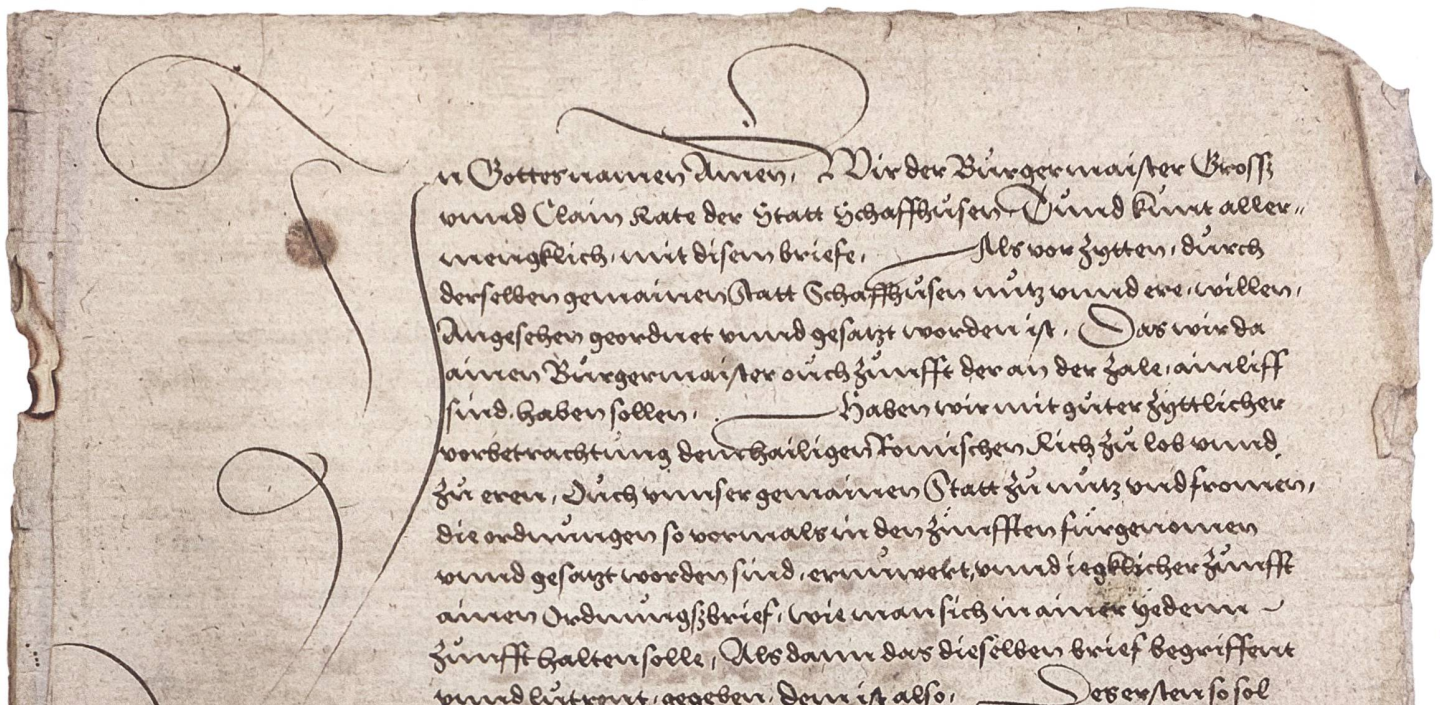 In Gottes namen Amen, Wir der Burgermaister Gross
vnnd Clain Räte der Statt Schaffhusen Tund kunt aller„
mengklich, mit disem briefe, Als vor zytten, durch
derselben gemainen Statt Schaffhusen nutz vnnd ere, willen,
Angesehen geordnet vnnd gesatzt worden ist, Das wir da
ainen Burgermaister ouch zunfft der an der zale, ainliff
sind, haben sollen, Haben wir mit guter zyttlicher
vorbetrachtung dem hailigen Romischen Rich zu lob vnnd
zu eren, Ouch vnnser gemainen Statt zu nutz vnd fromen,
die ordnungen so vormals in den zunfften furgenomen
vnnd gesatzt worden sind, ernuwert, vnnd iegklicher zunfft
ainen Ordnungszbrief, wie man sich in ainer yedenn
zunfft halten solle, Als dann das dieselben brief begriffent
vnnd lutrent, gegeben, dem ist also, Des ersten so sol